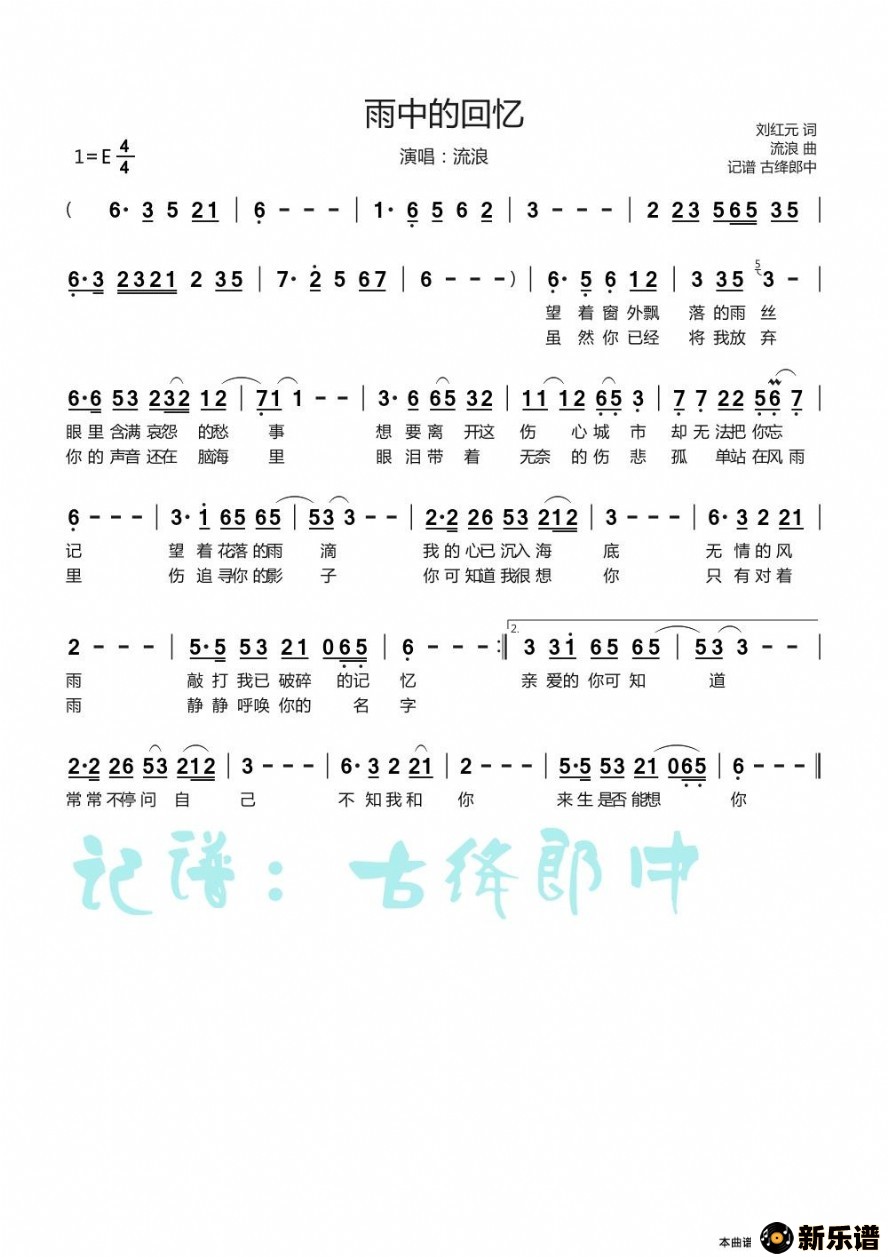 雨中的回忆
1=E 4/4
演唱：流浪
刘红元 词
流浪 曲
记谱 古绛郎中
( 6· 3 5 21 | 6 - - - | 1· 6 5 6 2 | 3 - - - | 2 23 565 35 |
6·3 2321 2 35 | 7· 2 5 67 | 6 - - - ) | 6· 5 6 12 | 3 35 5 3 - |
望 着 窗 外飘 落 的雨 丝
虽 然 你 已经 将 我放 弃
6·6 53 232 12 | 71 1 - - | 3· 6 65 32 | 11 12 65 3 | 7 7 22 56 7 |
眼里 含满 哀怨 的愁 事 想 要 离 开这 伤 心 城 市 却 无 法把 你忘
你的 声音 还在 脑海 里 眼 泪 带 着 无奈 的 伤 悲 孤 单站 在风 雨
6 - - - | 3· 1 65 65 | 53 3 - - | 2·2 26 53 212 | 3 - - - | 6· 3 2 21 |
记 望 着 花落 的雨 滴 我的 心已 沉入 海 底 无 情 的 风
里 伤 追 寻你 的影 子 你可 知道 我很 想 你 只 有 对 着
2 - - - | 5·5 53 21 065 | 6 - - - :‖ 2. 3 31 65 65 | 53 3 - - |
雨 敲打 我已 破碎 的记 忆 亲 爱的 你可 知 道
雨 静静 呼唤 你的 名 字
2·2 26 53 212 | 3 - - - | 6· 3 2 21 | 2 - - - | 5·5 53 21 065 | 6 - - - ‖
常常 不停 问 自 己 不 知 我 和 你 来生 是否 能想 你
记谱：古绛郎中
本曲谱
新乐谱